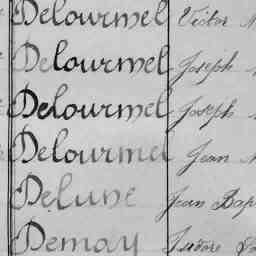 Delourmel Victor
Delourmel Joseph
Delourmel Joseph
Delourmel Jean
Delune Jean Bap
Demay Isidore